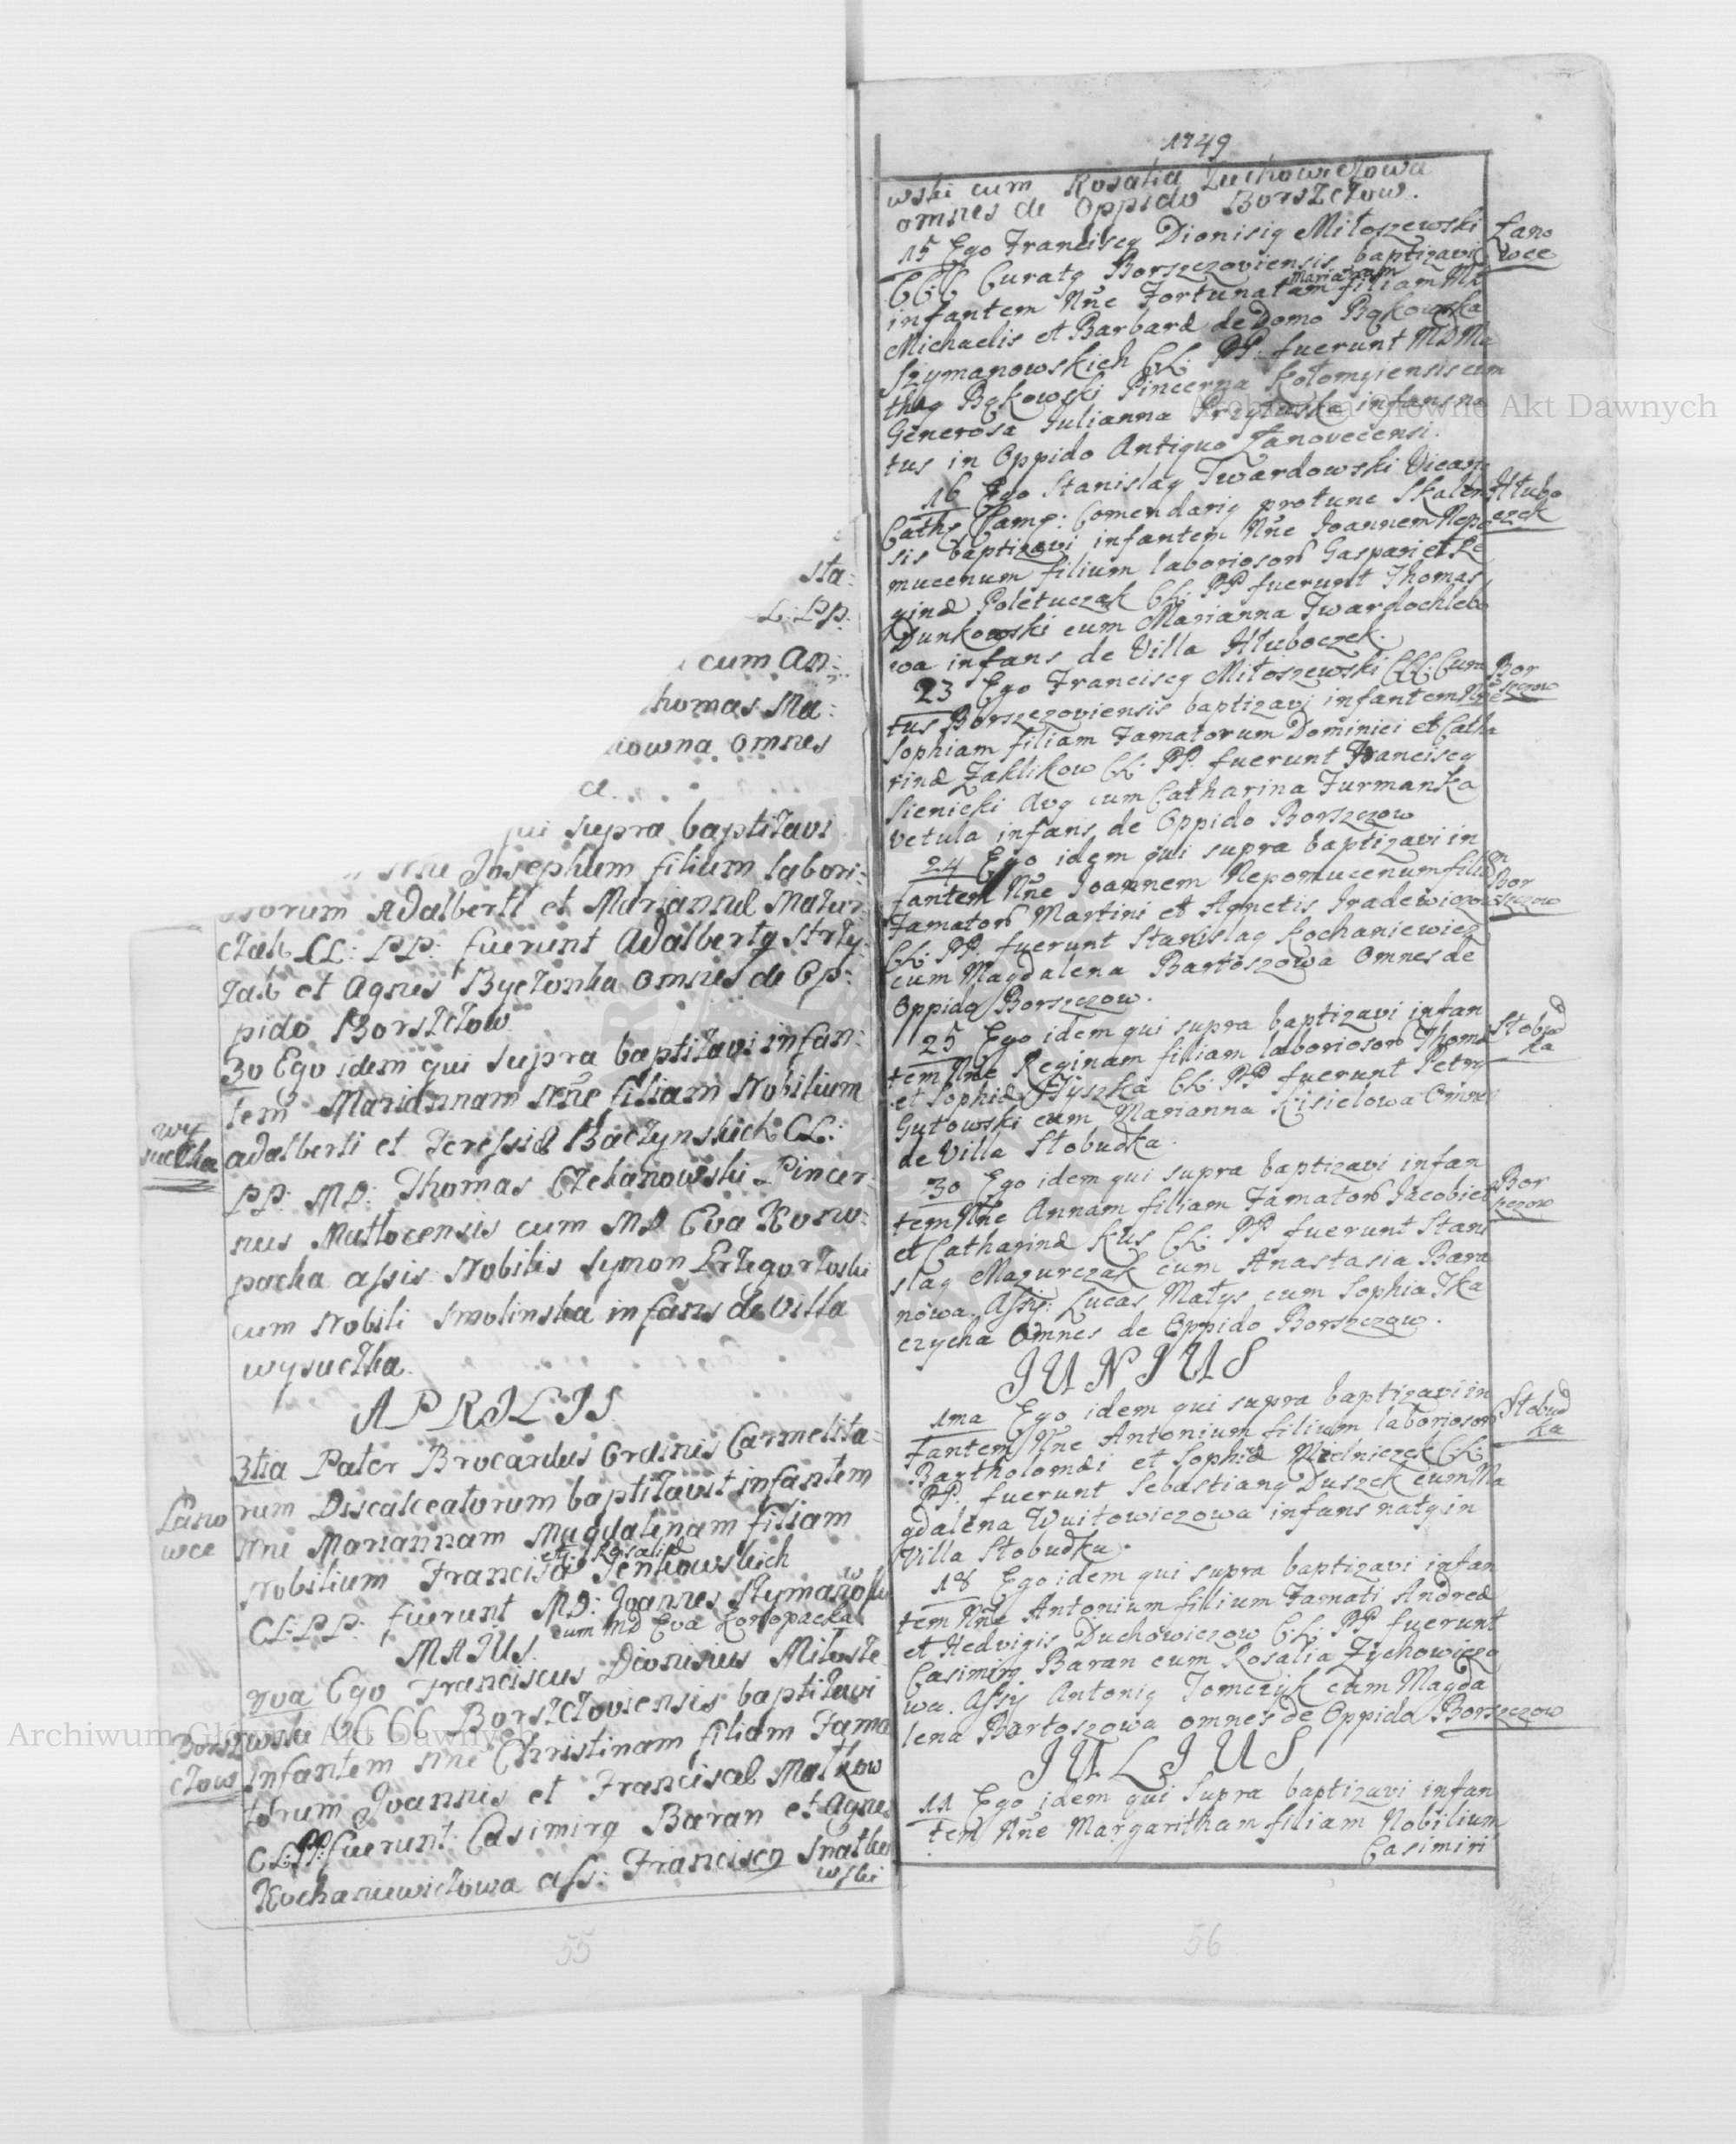 sta:
L: PP:
cum An:
homas Ma:
iowna omnes
ce.
qui supra baptizavi
Nne Josephum filium labori:
osorum Adalberti et Mariannæ Mazur
czak CL: PP: fuerunt Adalbertq Strzy:
żak et Agnes Byczonka omnes de Op:
pido Borszczow.
30 Ego idem qui supra baptizavi infan:
tem Mariannam Nne filiam Nobilium
wy
suczka
Adalberti et Teressiæ Baczynskich CL:
PP: MD: Thomas Czekanowski Pincer:
nus cum MD Eva Korro:
packa assis: Nobilis Symon
cum Nobili Smolinska infans de Villa
wysuczka.
APRILIS
3tia Pater Brocardus Ordinis Carmelita:
rum Discalceatorum baptizavit infantem
Łano
wce
Nne Mariannam Magdalenam filiam
et Rosaliæ
Nobilium Francisci Tenkowskich
CL: PP: fuerunt MD: Joannes Szymanows
cum MD Eva Konopacka
MAJUS.
Ego Franciscus Dionisius Miłosze
wski CCCC Borszczoviensis baptizavi
Borsz
czow
Infantem Nne Christinam filiam Fama
torum Joannis et Franciscæ
CL: PP: fuerunt Casimirq Baran et Agnes
Kochaniewiczowa ass: Franciscq Snatke
wski
55
1749
wski cum Rosalia Zuchowiczowa
omnes de Oppido Borszczow.
15 Ego Franciscq Dionisiq Miłoszewski
Łano
wce
CCC Curatq Borszczoviensis baptizavi
Mariannam
infantem Nne Fortunatam filiam MD
Michaelis et Barbaræ de Domo Bąkowska
Szymanowskich CL: PP: fuerunt MD Ma
theq Bąkowski Pincerna Kołomyiensis cum
Generosa Julianna infans na
tus in Oppido Antiquo Łanovecensi.
16 Ego Stanislaq Twardowski Vican:
Hłubo
czek
Cathq Camp: Comendariq protunc Skalen
sis baptizavi infantem Nne Joannem Nepo
mucenum filium laboriosorum Gaspari et Re
ginæ Poletuczak CL: PP fuerunt Thomas
Dunkowski cum Marianna Twardochlebo
wa infans de Villa Hłuboczek.
23 Ego Franciscq Miłoszewski CCC: Cura
Bor
szczow
tus Borszczoviensis baptizavi infantem Nne
Sophiam filiam Famatorum Dominici et Catha
rinæ Zaklikow CL: PP. fuerunt Franciscq
Sienicki Avq cum Catharina Furmanka
vetula infans de Oppido Borszczow
24 Ego idem qui supra baptizavi in
Bor
szczow
fantem Nne Joannem Nepomucenum filiū
Famatorū Martini et Agnetis Iradewiczow
CL: PP: fuerunt Stanislaq Kochaniewicz
cum Magdalena Bartoszowa Omnes de
Oppido Borszczow.
25 Ego idem qui supra baptizavi infan
Słobud
ka
tem Nne Reginam filiam laboriosorū Thomæ
et Sophiæ Hyszka CL: PP fuerunt Petrq
Gutowski cum Marianna Kisielowa Omnes
de Villa Słobudka.
30 Ego idem qui supra baptizavi infan
Bor
szczow
tem Nne Annam filiam Famatorū Jacobi et
et Catharinæ Kus CL: PP fuerunt Stani
slaq Mazurczak cum Anastasia Bara
nowa. Assis: Lucas Matys cum Sophia Tka
czycha Omnes de Oppido Borszczow.
JUNIUS
1ma Ego idem qui supra baptizavi in
Słobud
ka
fantem Nne Antonium filium laboriosorū
Bartholomæi et Sophiæ Mielniczek CL:
PP: fuerunt Sebastianq Duszek cum Ma
gdalena Wuitowiczowa infans natq in
Villa Słobudka.
18 Ego idem qui supra baptizavi infan
tem Nne Antonium filium Famati Andreæ
et Hedvigis Duchowiczow CL: PP fuerunt
Casimirq Baran cum Rosalia Zychowiczo
wa. Assis Antoniq Tomczyk cum Magda
lena Bartoszowa omnes de Oppido Borszczow
JULJUS
11 Ego idem qui Supra baptizavi infan
tem Nne Margaritham filiam Nobilium
Casimiri
56
Archiwum Główne Akt Dawnych
Archiwum Główne Akt Dawnych